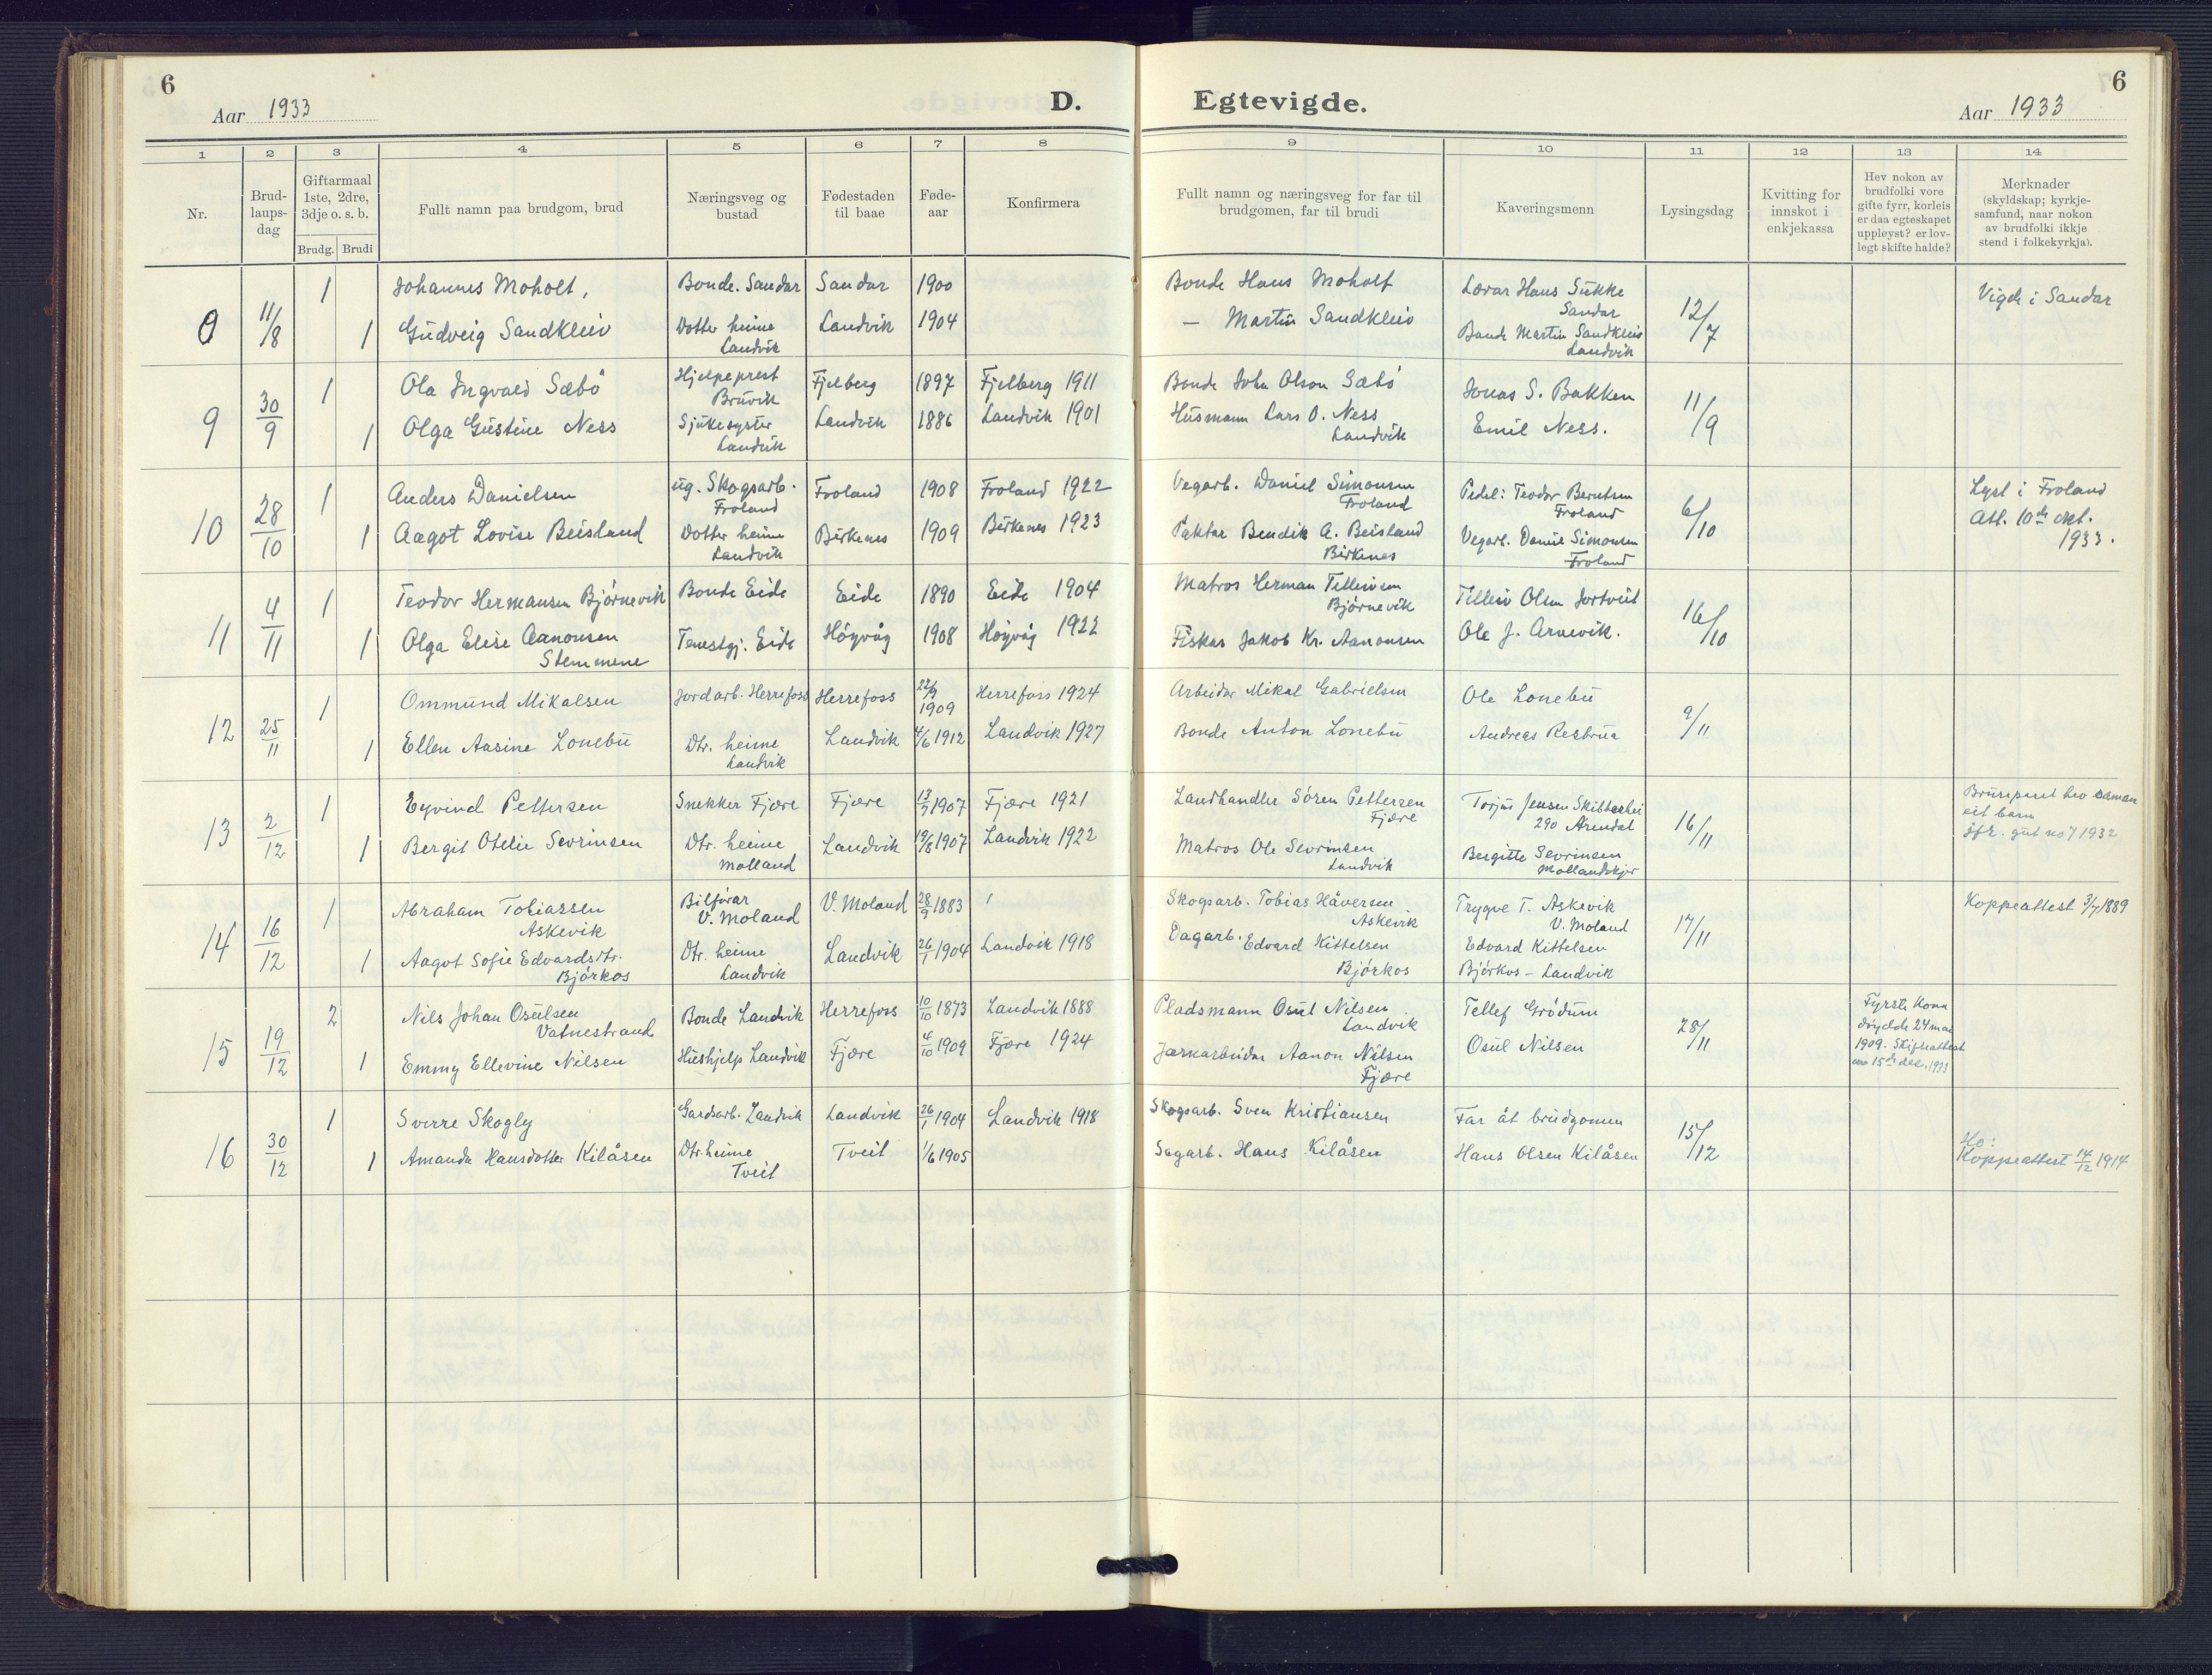 6
Aar 1933
D.
Egtevigde.
6
Aar 1933
1 2 3 4 5 6 7 8 9 10 11 12 13 14
Nr.
Brud-
laups-
dag
Giftarmaal
1ste, 2dre,
3dje o. s. b.
Brudg. Brudi
Fullt namn paa brudgom, brud
Næringsveg og
bustad
Fødestaden
til baae
Føde-
aar
Konfirmera
Fullt namn og næringsveg for far til
brudgomen, far til brudi
Kaveringsmenn
Lysingsdag
Kvitting for
innskot i
enkjekassa
Hev nokon av
brudfolki vore
gifte fyrr, korleis
er daa egteskapet
uppløyst? er lov-
legt skifte halde?
Merknader
(skyldskap; kyrkje-
samfund, naar nokon
av brudfolki ikkje
stend i folkekyrkja).
0 11/8
1 Johannes Moholt, Bonde. Sandar Sandar 1900
1 Gudveig Sandkleiv Dotter heime Landvik Landvik 1904
Bonde Hans Moholt
— Martin Sandkleiv
Lærar Hans Sukke
Sandar
Bonde Martin Sandkleiv
Landvik
12/7
Vigde i Sandar
9 30/9
1 Ola Ingvald Sæbö Hjelpeprest Bruvik Fjelberg 1897 Fjelberg 1911
1 Olga Gustine Ness Sjukesyster Landvik Landvik 1886 Landvik 1901
Bonde John Olson Sæbö
Husmann Lars O. Ness
Landvik
Jonas S. Bakken
Emil Ness.
11/9
10 28/10
1 Anders Danielsen ug. Skogsarb. Froland Froland 1908 Froland 1922
1 Aagot Lovise Beisland Dotter heime Landvik Birkenes 1909 Birkenes 1923
Vegarb. Daniel Simonsen
Froland
Paktar Bendik A. Beisland
Birkenes
Pedel: Teodor Berntsen
Froland
Vegarb. Daniel Simonsen
Froland
6/10
Lyst i Froland
Att. 10de okt.
1933.
11 4/11
1 Teodor Hermansen Björnevik Bonde Eide Eide 1890 Eide 1904
1 Olga Elise Aanonsen Stemmene Tenestgj. Eide Höyvåg 1908 Höyvåg 1922
Matros Herman Tellevsen
Björnevik
Fiskar Jakob Kr. Aanonsen
Tellev Olsen Jortveit
Ole J. Arnevik.
16/10
12 25/11
1 Ommund Mikalsen Jordarb. Herrefoss Herrefoss 22/9 1909 Herrefoss 1924
1 Ellen Aasine Lonebu Dtr. heime Landvik Landvik 4/6 1912 Landvik 1927
Arbeidar Mikal Gabrielsen
Bonde Anton Lonebu
Ole Lonebu
Andreas Resbrua
9/11
13 2/12
1 Eyvind Pettersen Snekker Fjære Fjære 13/7 1907 Fjære 1921
1 Bergit Otelie Sevrinsen Dtr. heime Molland Landvik 19/8 1907 Landvik 1922
Landhandler Sören Pettersen
Fjære
Matros Ole Sevrinsen
Landvik
Torjus Jensen Skitterhei
290 Arendal
Bergitte Sevrinsen
Mollandskjer
16/11
Brureparet hev saman
eit barn
jfr. gut no 7 1932
14 16/12
1 Abraham Tobiassen Askevik Bilförar V. Moland V. Moland 28/9 1883
1 Aagot Sofie Edvardsdtr. Björkos Dtr. heime Landvik Landvik 26/1 1904 Landvik 1918
Skogsarb. Tobias Håversen
Askevik
Dagarb. Edvard Kittelsen
Björkos
Trygve T. Askevik
V. Moland
Edvard Kittelsen
Björkos – Landvik
17/11
Koppeattest 3/7 1889
15 19/12
2 Nils Johan Osulsen Vatnestrand Bonde Landvik Herrefoss 10/10 1873 Landvik 1888
1 Emmy Ellevine Nilsen Hushjelp Landvik Fjære 4/10 1909 Fjære 1924
Pladsmann Osul Nilsen
Landvik
Jarnarbeidar Aanon Nilsen
Fjære
Tellef Grödum
Osul Nilsen
28/11
Fyrste kona
döydde 24 mai
1909. Skifteattest
av 15de des. 1933
16 30/12
1 Sverre Skogly Gardsarb. Landvik Landvik 26/1 1904 Landvik 1918
1 Amanda Hansdotter Kilåsen Dtr. heime Tveit Tveit 1/6 1905
Skogsarb. Sven Kristiansen
Sagarb. Hans Kilåsen
Far åt brudgomen
Hans Olsen Kilåsen
15/12
Ho:
Koppeattest 14/12 1914